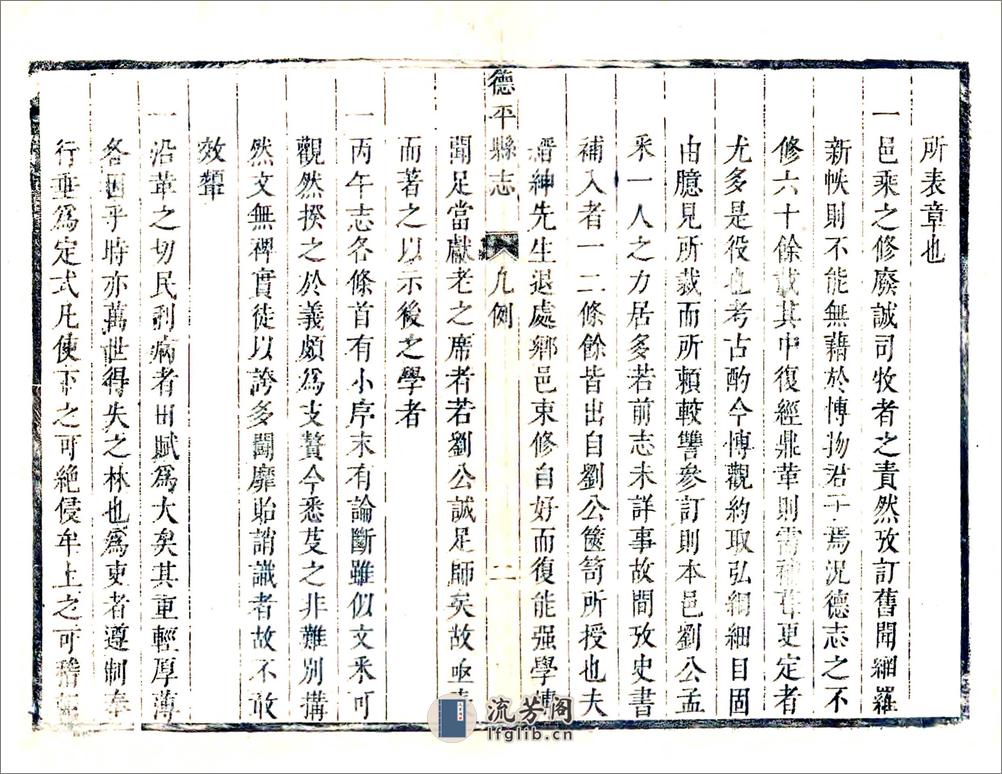 所表章也
一邑乘之修廢誠司牧者之責然攷訂舊聞網羅
新帙則不能無藉於博物君子焉況德志之不
修六十餘載其中復經鼎革則需補葺更定者
尤多是役也考古酌今博觀約取弘綱細目固
由臆見所裁而所賴較讐參訂則本邑劉公孟
釆一人之力居多若前志未詳事故間攷史書
補入者一二條餘皆出自劉公篋笥所授也夫
縉紳先生退處鄉邑束修自好而復能强學博
聞足當獻老之席者若劉公誠足師矣故亟
而著之以示後之學者
德平縣志 凡例 二
一丙午志各條首有小序末有論斷雖似文釆可
觀然揆之於義頗爲支贅今悉芟之非難別搆
然文無裨實徒以誇多鬪靡貽誚識者故不敢
效顰
一沿革之切民利病者田賦爲大矣其重輕厚薄
各因乎時亦萬世得失之林也爲吏者遵制奉
行垂爲定式凡使下之可絶侵牟上之可稽
流芳阁
lfglib.cn